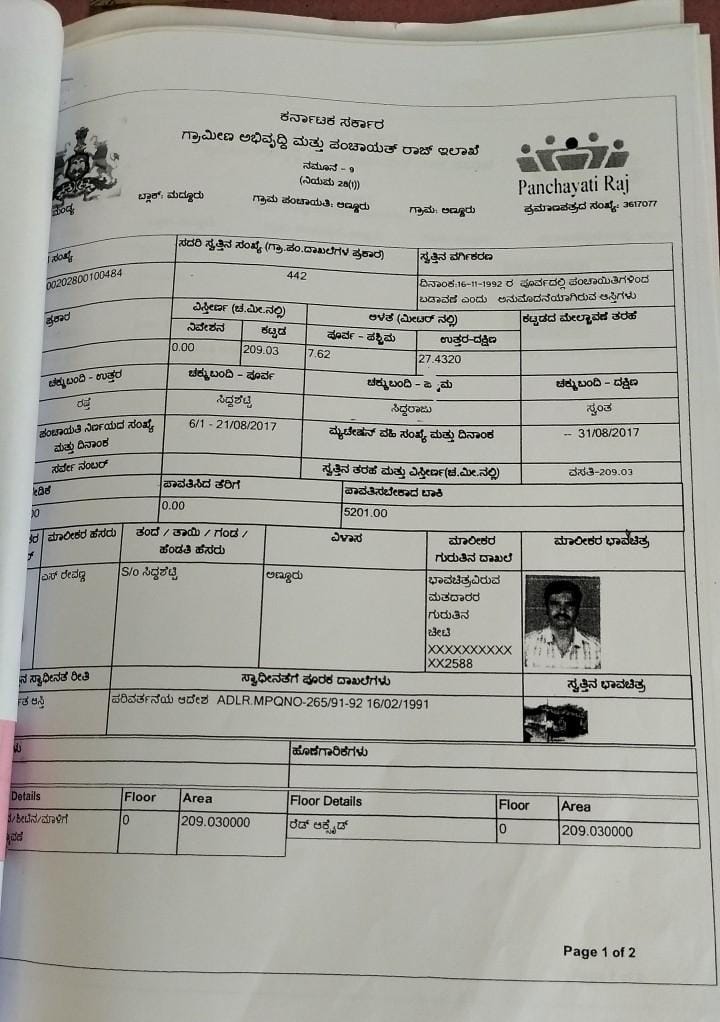 ಕರ್ನಾಟಕ ಸರ್ಕಾರ
ಗ್ರಾಮೀಣ ಅಭಿವೃದ್ಧಿ ಮತ್ತು ಪಂಚಾಯತ್ ರಾಜ್ ಇಲಾಖೆ
ನಮೂನೆ - 9
(ನಿಯಮ 28(1))
Panchayati Raj
ಮಂಡ್ಯ ಬ್ಲಾಕ್: ಮದ್ದೂರು ಗ್ರಾಮ ಪಂಚಾಯತಿ: ಅಣ್ಣೂರು ಗ್ರಾಮ: ಅಣ್ಣೂರು ಪ್ರಮಾಣಪತ್ರದ ಸಂಖ್ಯೆ: 3617077
ಸಂಖ್ಯೆ ಸದರಿ ಸ್ವತ್ತಿನ ಸಂಖ್ಯೆ (ಗ್ರಾ.ಪಂ.ದಾಖಲೆಗಳ ಪ್ರಕಾರ) ಸ್ವತ್ತಿನ ವರ್ಗೀಕರಣ
00202800100484 442 ದಿನಾಂಕ:16-11-1992 ರ ಪೂರ್ವದಲ್ಲಿ ಪಂಚಾಯಿತಿಗಳಿಂದ
ಬಡಾವಣೆ ಎಂದು ಅನುಮೊದನೆಯಾಗಿರುವ ಆಸ್ತಿಗಳು
ಪ್ರಕಾರ ವಿಸ್ತೀರ್ಣ (ಚ.ಮೀ.ನಲ್ಲಿ) ಅಳತೆ (ಮೀಟರ್ ನಲ್ಲಿ) ಕಟ್ಟಡದ ಮೇಲ್ಛಾವಣೆ ತರಹೆ
ನಿವೇಶನ ಕಟ್ಟಡ ಪೂರ್ವ - ಪಶ್ಚಿಮ ಉತ್ತರ-ದಕ್ಷಿಣ
0.00 209.03 7.62 27.4320
ಚಕ್ಕುಬಂದಿ - ಉತ್ತರ ಚಕ್ಕುಬಂದಿ - ಪೂರ್ವ ಚಕ್ಕುಬಂದಿ - ಚಕ್ಕುಬಂದಿ - ದಕ್ಷಿಣ
ರಸ್ತೆ ಸಿದ್ದಶೆಟ್ಟಿ ಸಿದ್ದರಾಜು ಸ್ವಂತ
ಪಂಚಾಯತಿ ನಿರ್ಣಯದ ಸಂಖ್ಯೆ 6/1 - 21/08/2017 ಮ್ಯುಟೇಷನ್ ವಹಿ ಸಂಖ್ಯೆ ಮತ್ತು ದಿನಾಂಕ -- 31/08/2017
ಮತ್ತು ದಿನಾಂಕ
ಸರ್ವೇ ನಂಬರ್ ಸ್ವತ್ತಿನ ತರಹೆ ಮತ್ತು ವಿಸ್ತೀರ್ಣ(ಚ.ಮೀ.ನಲ್ಲಿ) ವಸತಿ-209.03
ಪಾವತಿಸಿದ ತೆರಿಗೆ ಪಾವತಿಸಬೇಕಾದ ಬಾಕಿ
0.00 5201.00
ಮಾಲೀಕರ ಹೆಸರು ತಂದೆ / ತಾಯಿ / ಗಂಡ / ವಿಳಾಸ ಮಾಲೀಕರ ಮಾಲೀಕರ ಭಾವಚಿತ್ರ
ಹೆಂಡತಿ ಹೆಸರು ಗುರುತಿನ ದಾಖಲೆ
ಎಸ್ ರೇವಣ್ಣ S/o ಸಿದ್ದಶೆಟ್ಟಿ ಅಣ್ಣೂರು ಭಾವಚಿತ್ರವಿರುವ
ಮತದಾರರ
ಗುರುತಿನ
ಚೀಟಿ
XXXXXXXXXX
XX2588
ಸ್ವಾಧೀನತೆ ರೀತಿ ಸ್ವಾಧೀನತೆಗೆ ಪೂರಕ ದಾಖಲೆಗಳು ಸ್ವತ್ತಿನ ಭಾವಚಿತ್ರ
ಆಸ್ತಿ ಪರಿವರ್ತನೆಯ ಆದೇಶ ADLR.MPQNO-265/91-92 16/02/1991
ಹೊಣೆಗಾರಿಕೆಗಳು
Details Floor Area Floor Details Floor Area
0 209.030000 ರೆಡ್ ಆಕ್ಸೈಡ್ 0 209.030000
Page 1 of 2